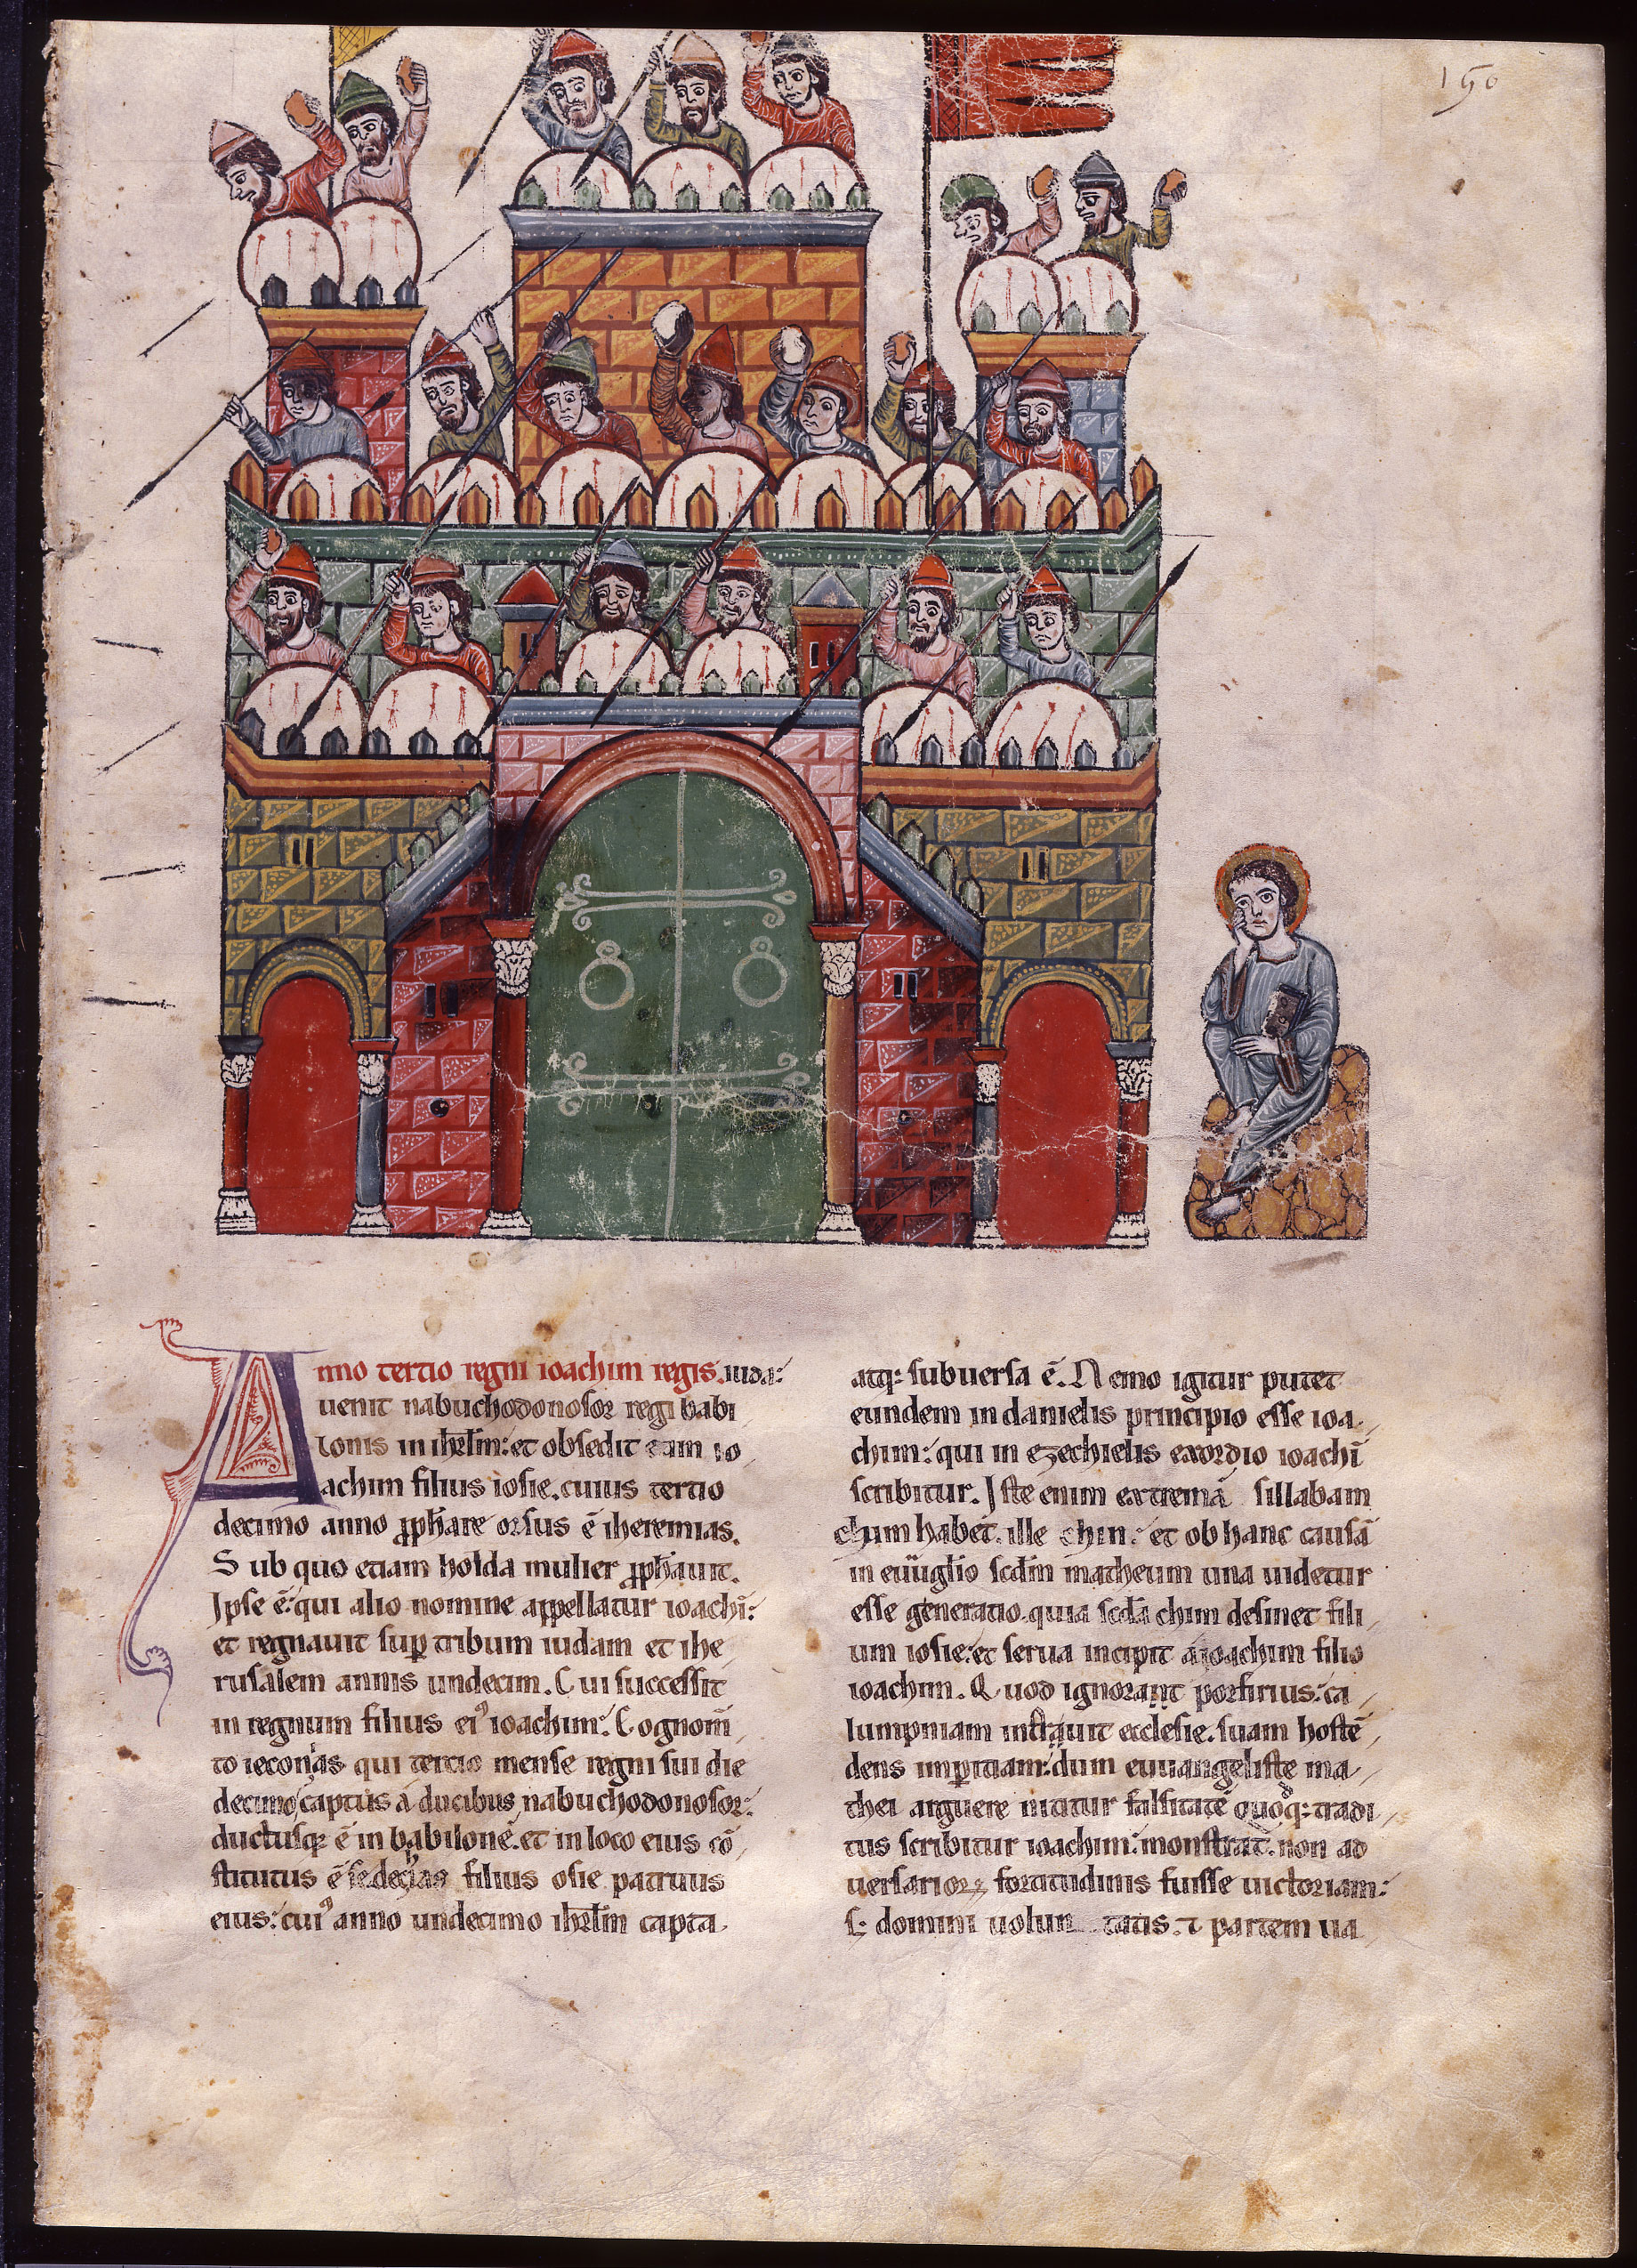 150
Anno tertio regni ioachim regis iuda:
uenit nabuchodonosor regi babi
lonis in ihrl̄m: et obsedit eam io
achim filius iosie. cuius tertio
decimo anno ꝓph̄are orsus ē iheremias.
Sub quo etiam holda mulier ꝓph̄auit.
Ipse ē: qui alio nomine appellatur ioachī:
et regnauit suꝑ tribum iudam et ihe
rusalem annis undecim. Cui successit
in regnum filius eiꝰ ioachim: Cognom̄
to ieconias qui tercio mense regni sui die
decimo captus a ducibus nabuchodonosor:
ductusqꝫ ē in babilone. et in loco eius cō
stitutus ē sedecias filius osie patruus
eius: cuiꝰ anno undecimo ihrl̄m capta.
atq: subuersa ē. Nemo igitur putet
eundem in danielis principio esse ioa
chim: qui in ezechielis exordio ioachī
scribitur. Iste enim extremā sillabam
chim habet. ille chin: et ob hanc causā
in euu̅glio scdm̄ matheum una uidetur
esse generatio. quia scd̄a chim desinet fili
um iosie: et serua incipit a ioachim filio
ioachim. Quod ignorant porfirius: ca
lumpniam instrauit ecclesie. suam hostē
dens imꝑitiam: dum euuangeliste ma
thei arguere nititur falsitatē Quodq: tradi
tus scribitur ioachim: monstrat. non ad
uersarioꝝ fortitudinis fuisse uictoriam:
s; domini uolun tatis. ⁊ partem ua